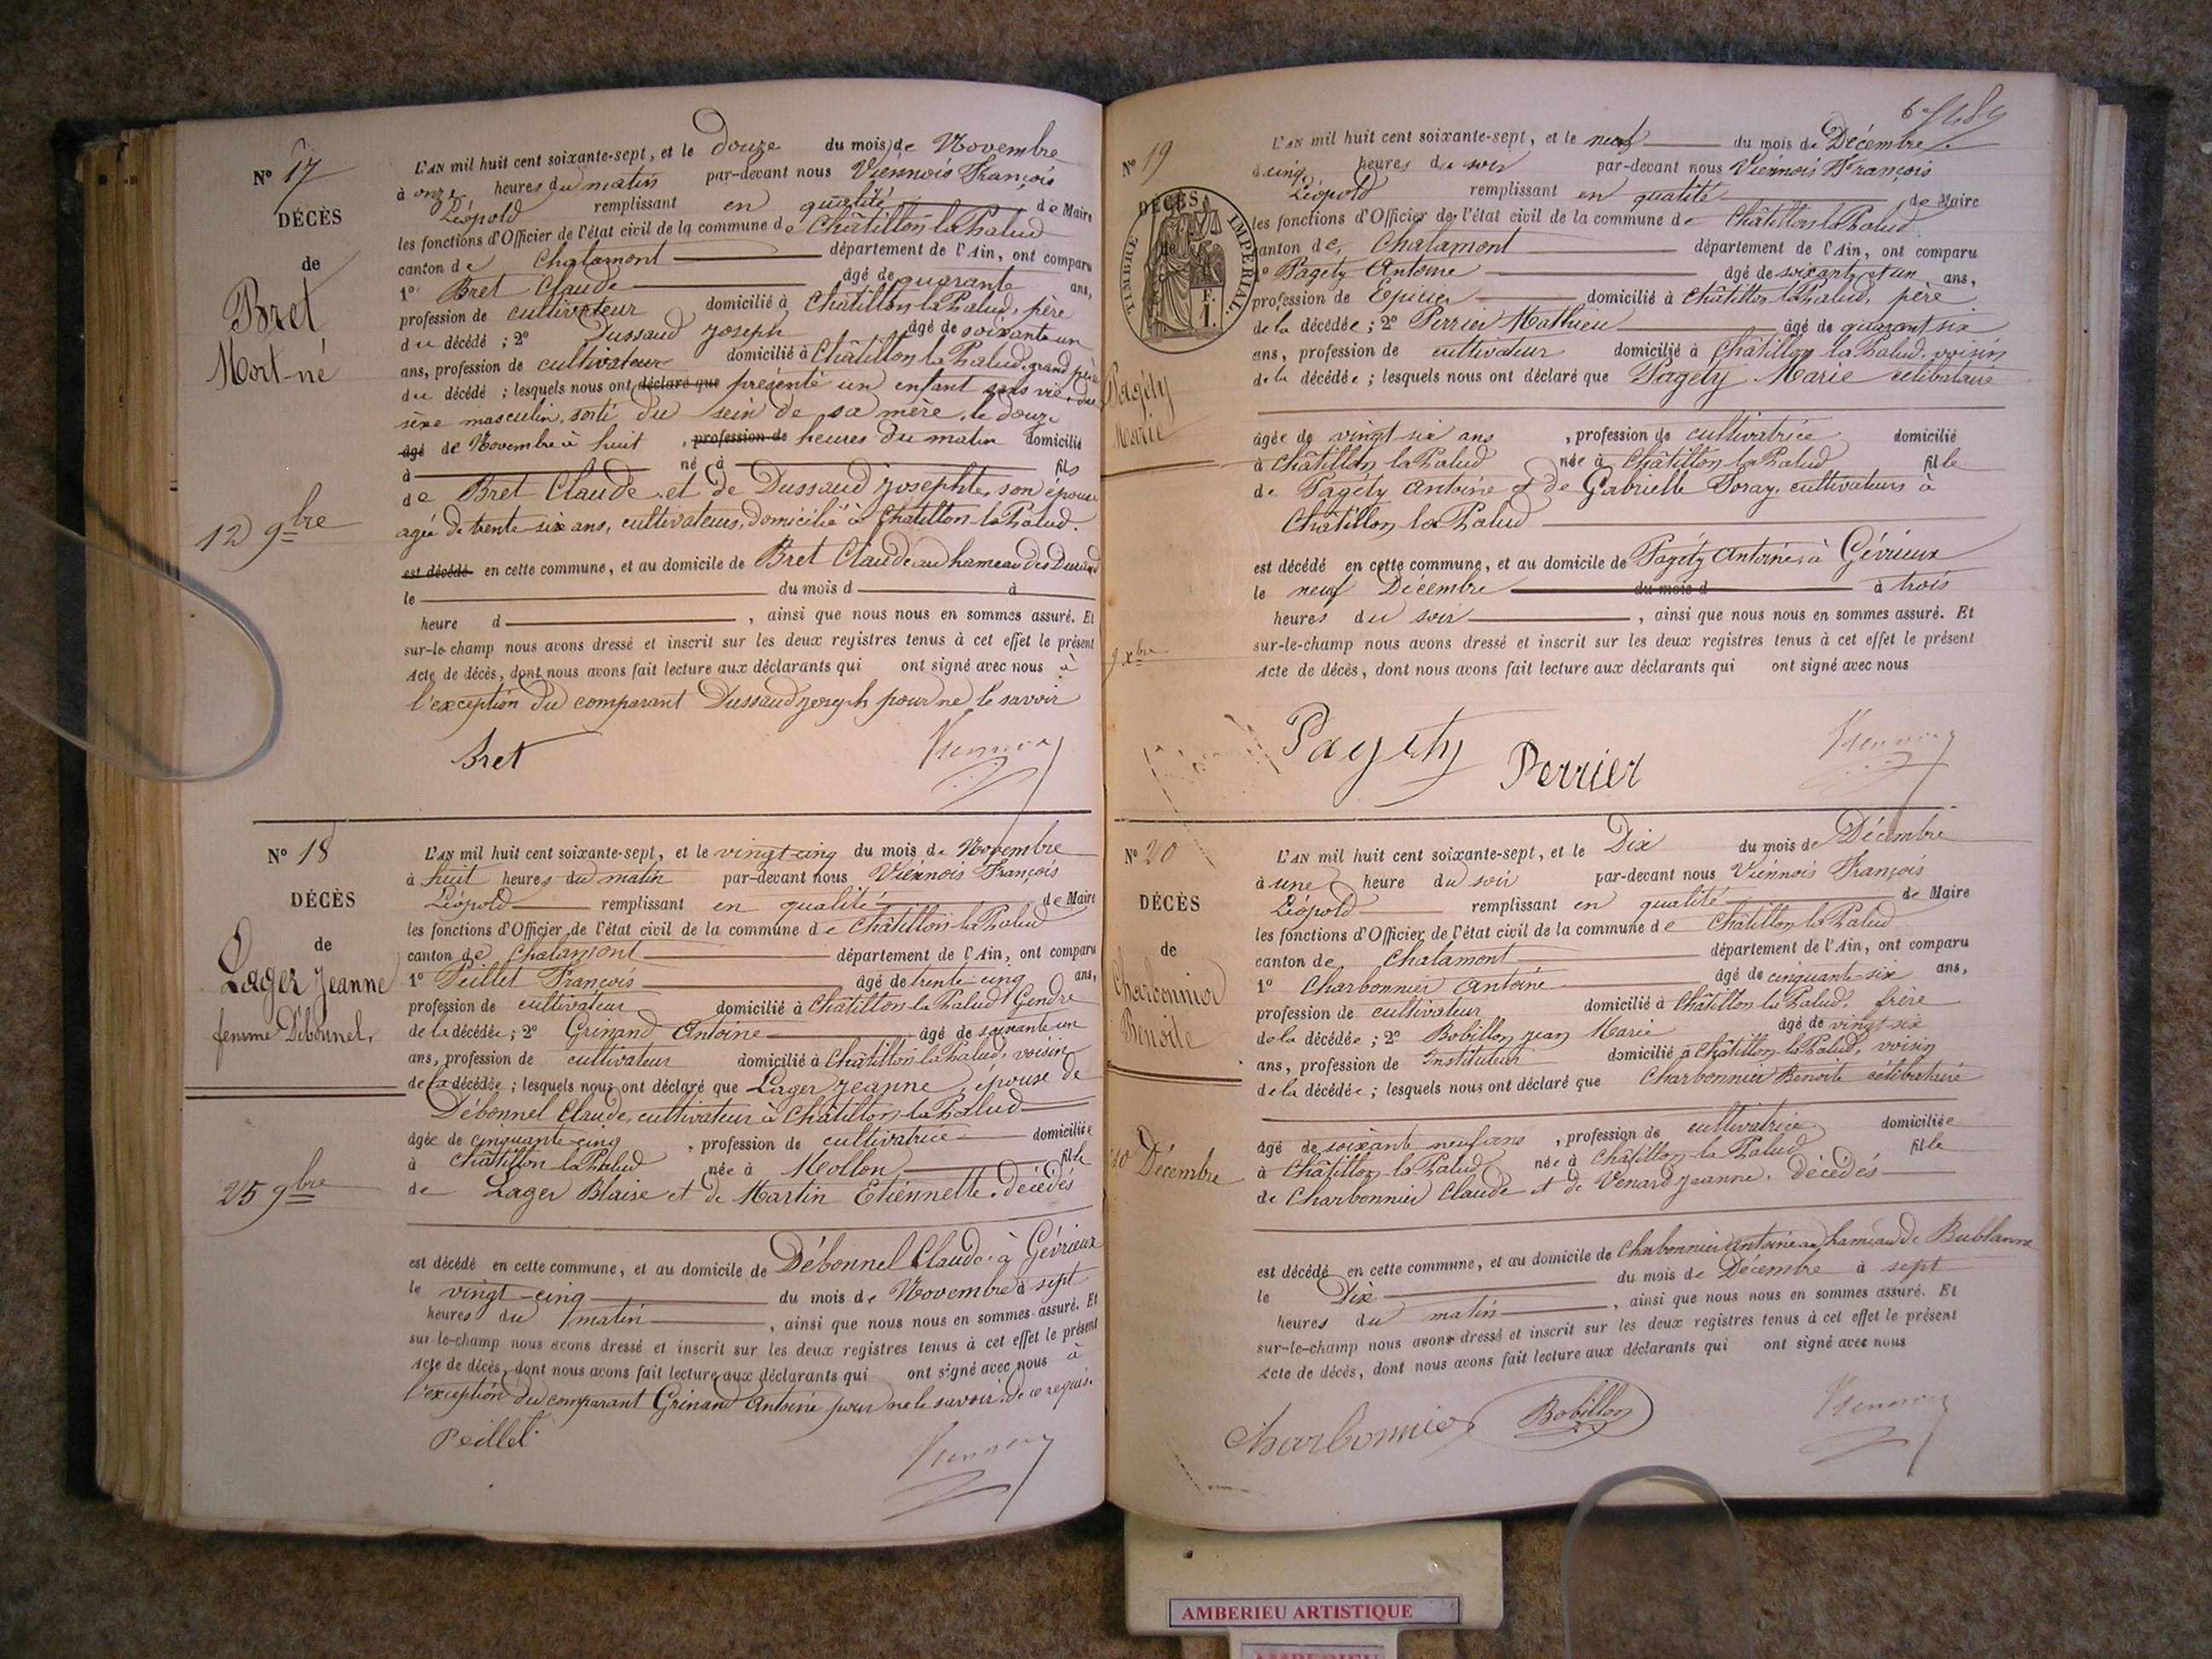 N° 17
DÉCÈS
de
Bret
Mort-né
12 9bre
L'AN mil huit cent soixante-sept, et le douze du mois de Novembre
à onze heures du matin par-devant nous Viennois François
Léopold remplissant en qualité de Maire
les fonctions d'Officier de l'état civil de la commune de Châtillon-la-Palud
canton de Chalamont département de l'Ain, ont comparu
1° Bret Claude âgé de quarante ans,
profession de cultivateur domicilié à Châtillon la Palud, père
du décédé ; 2° Dussaud Joseph âgé de soixante un
ans, profession de cultivateur domicilié à Châtillon la Palud, grand père
du décédé ; lesquels nous ont déclaré que présenté un enfant sans vie, du
sexe masculin, sorti du sein de sa mère, le douze
âgé de Novembre à huit , profession de heures du matin domicilié
à né à fils
de Bret Claude et de Dussaud Josephte, son épouse
agée de trente-six ans, cultivateurs, domicilié à Châtillon-la-Palud.
est décédé en cette commune, et au domicile de Bret Claude au hameau des Durand
le du mois d à
heure d , ainsi que nous nous en sommes assuré. Et
sur-le-champ nous avons dressé et inscrit sur les deux registres tenus à cet effet le présent
Acte de décès, dont nous avons fait lecture aux déclarants qui ont signé avec nous à
l'exception du comparant Dussaud Joseph pour ne le savoir
Bret Viennois
N° 18
DÉCÈS
de
Lager Jeanne
femme Débonnel.
25 9bre
L'AN mil huit cent soixante-sept, et le vingt-cinq du mois de Novembre
à huit heures du matin par-devant nous Viennois François
Léopold remplissant en qualité de Maire
les fonctions d'Officier de l'état civil de la commune de Châtillon-la-Palud
canton de Chalamont département de l'Ain, ont comparu
1° Peillet François âgé de trente-cinq ans,
profession de cultivateur domicilié à Châtillon-la-Palud Gendre
de la décédée ; 2° Grinand Antoine âgé de soixante un
ans, profession de cultivateur domicilié à Châtillon-la-Palud, voisin
de la décédée ; lesquels nous ont déclaré que Lager Jeanne, épouse de
Débonnel Claude, cultivateur à Châtillon-la-Palud
âgée de cinquante-cinq , profession de cultivatrice domiciliée
à Châtillon-la-Palud née à Mollon fille
de Lager Blaise et de Martin Etiennette, décédés
est décédé en cette commune, et au domicile de Débonnel Claude à Gévrieux
le vingt-cinq du mois de Novembre à sept
heures du matin , ainsi que nous nous en sommes assuré. Et
sur-le-champ nous avons dressé et inscrit sur les deux registres tenus à cet effet le présent
Acte de décès, dont nous avons fait lecture aux déclarants qui ont signé avec nous à
l'exception du comparant Grinand Antoine pour ne le savoir, de ce requis.
Peillet Viennois
N° 19
DÉCÈS
TIMBRE IMPÉRIAL
Pagéty
Marie
9 xbre
L'AN mil huit cent soixante-sept, et le neuf du mois de Décembre
à cinq heures du soir par-devant nous Viennois François
Léopold remplissant en qualité de Maire
les fonctions d'Officier de l'état civil de la commune de Châtillon-la-Palud
canton de Chalamont département de l'Ain, ont comparu
1° Pagéty Antoine âgé de soixante et un ans,
profession de Epicier domicilié à Châtillon la Palud, père
de la décédée ; 2° Perrier Mathieu âgé de quarant-six
ans, profession de cultivateur domicilié à Châtillon la Palud, voisin
de la décédée ; lesquels nous ont déclaré que Pagéty Marie célibataire
âgée de vingt six ans , profession de cultivatrice domicilié
à Châtillon la Palud née à Châtillon la Palud fille
de Pagéty Antoine et de Gabrielle Soray, cultivateurs à
Châtillon la Palud
est décédé en cette commune, et au domicile de Pagéty Antoine, à Gévrieux
le neuf Décembre du mois d à trois
heures du soir , ainsi que nous nous en sommes assuré. Et
sur-le-champ nous avons dressé et inscrit sur les deux registres tenus à cet effet le présent
Acte de décès, dont nous avons fait lecture aux déclarants qui ont signé avec nous
Pagéty Perrier Viennois
N° 20
DÉCÈS
de
Charbonnier
Benoite
10 Décembre
L'AN mil huit cent soixante-sept, et le Dix du mois de Décembre
à une heure du soir par-devant nous Viennois François
Léopold remplissant en qualité de Maire
les fonctions d'Officier de l'état civil de la commune de Châtillon la Palud
canton de Chalamont département de l'Ain, ont comparu
1° Charbonnier Antoine âgé de cinquante-six ans,
profession de cultivateur domicilié à Châtillon la Palud, frère
de la décédée ; 2° Bobillon Jean Marie âgé de vingt-six
ans, profession de Instituteur domicilié à Châtillon la Palud, voisin
de la décédée ; lesquels nous ont déclaré que Charbonnier Benoite célibataire
âgé de soixante neuf ans , profession de cultivatrice domiciliée
à Châtillon-la-Palud née à Châtillon-la-Palud fille
de Charbonnier Claude et de Venard Jeanne, Décédés
est décédé en cette commune, et au domicile de Charbonnier Antoine au hameau de Bublanne
le Dix du mois de Décembre à sept
heures du matin , ainsi que nous nous en sommes assuré. Et
sur-le-champ nous avons dressé et inscrit sur les deux registres tenus à cet effet le présent
Acte de décès, dont nous avons fait lecture aux déclarants qui ont signé avec nous
Charbonnier Bobillon Viennois
AMBERIEU ARTISTIQUE
AMBERIEU